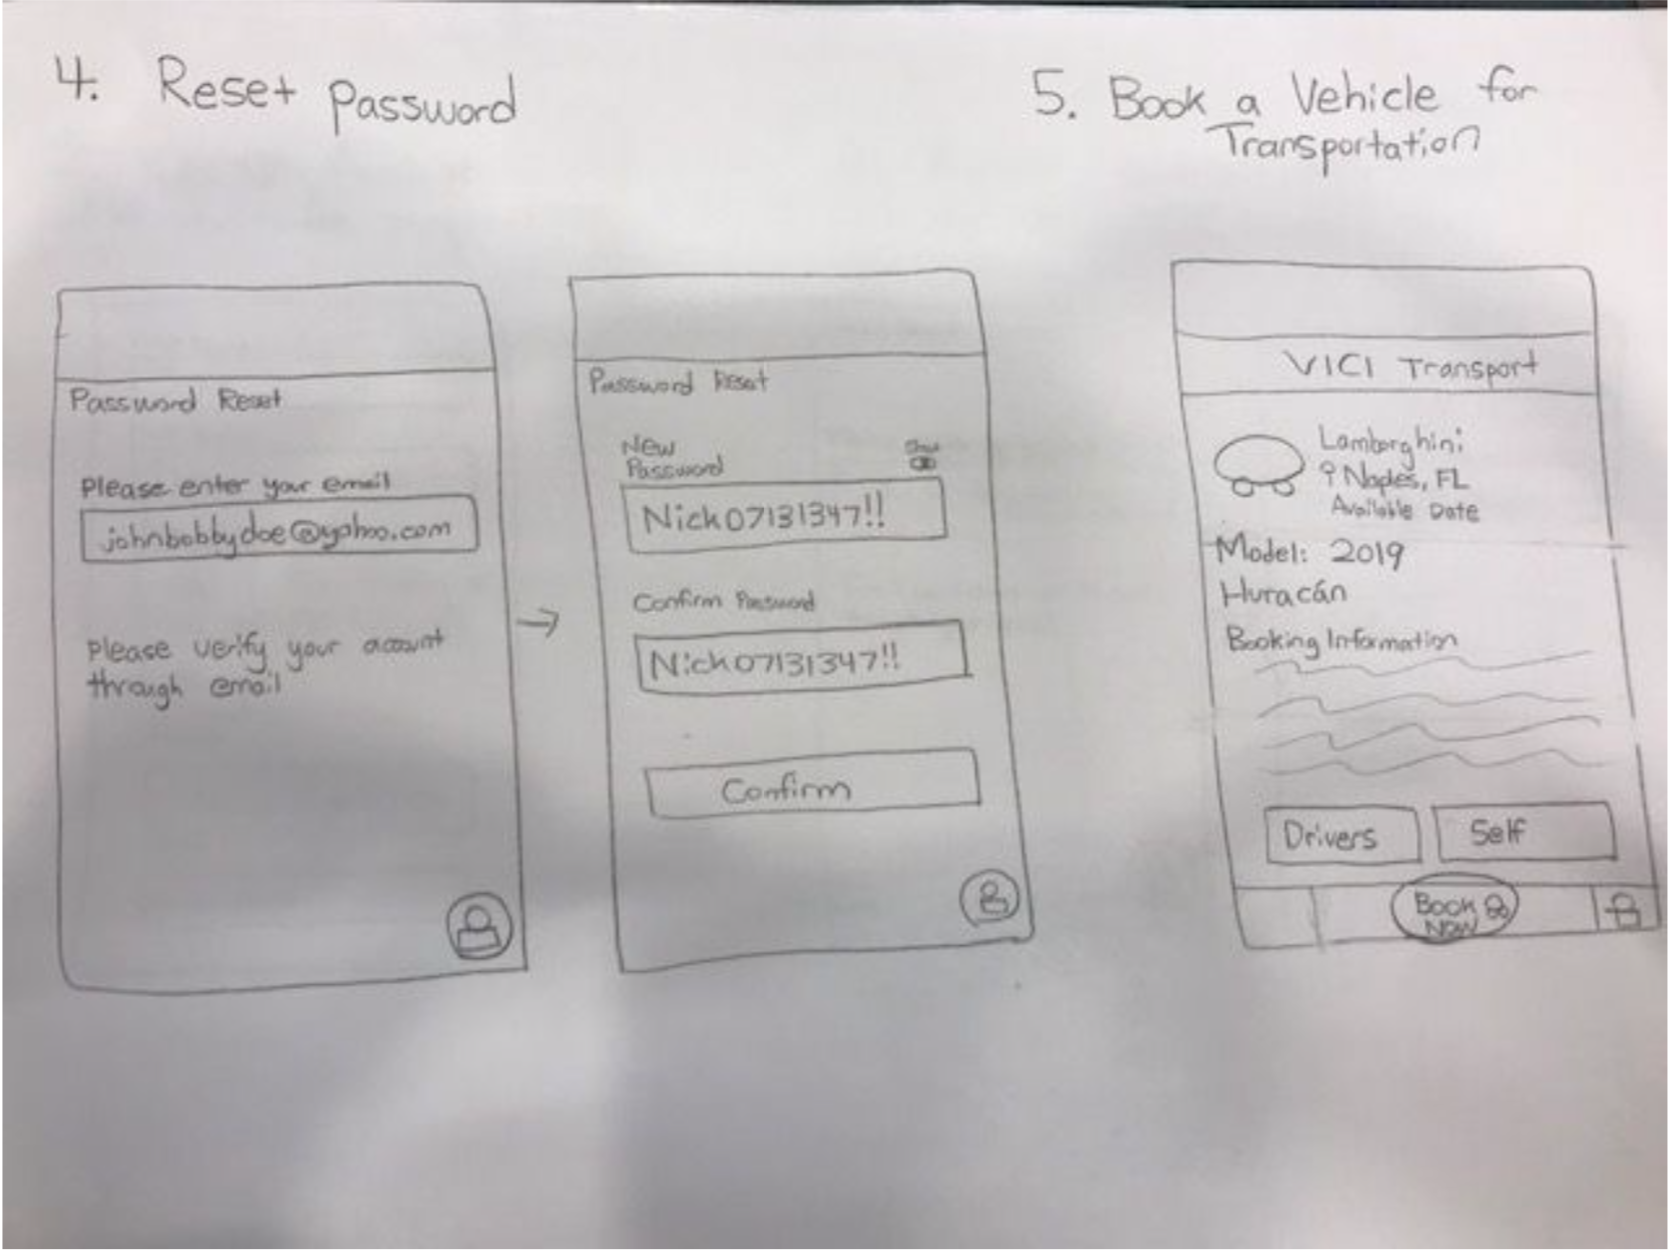 4. Reset Password
5. Book a Vehicle for
Transportation
Password Reset
Please enter your email
johnbobbydoe@yahoo.com
Please verify your account
through email
Password Reset
New
Password
Show
Nick07131347!!
Confirm Password
Nick07131347!!
Confirm
VICI Transport
Lamborghini
Naples, FL
Available Date
Model: 2019
Huracán
Booking Information
Drivers
Self
Book
Now